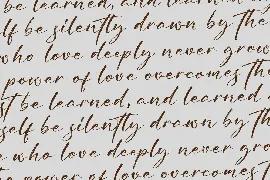 be learned, and learned
self be silently drawn by the
who love deeply never grow
power of love overcomes the
be learned, and learned
self be silently drawn by th
who love deeply never grow
power of love overcomes t